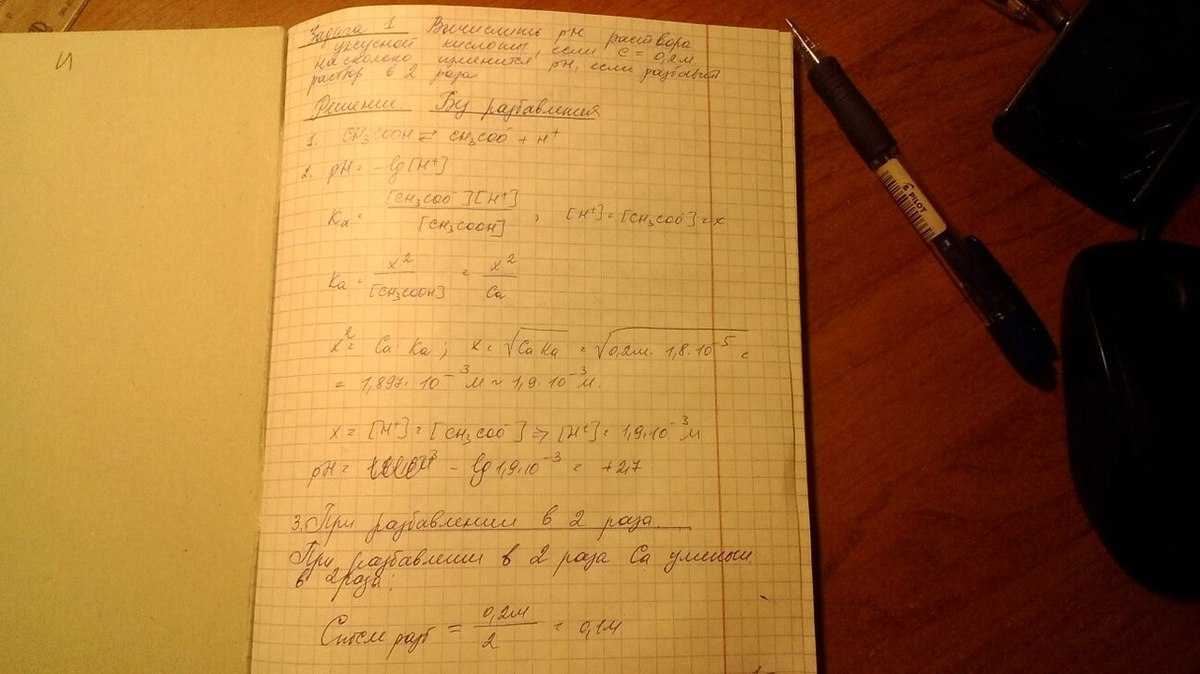 И
Задача 1 Вычислить pH раствора
уксусной кислоты, если C = 0,2м.
На сколько изменится pH, если разбавить
раствор в 2 раза
Решение Без разбавления
1. CH3COOH ⇄ CH3COO⁻ + H⁺
2. pH = -lg[H⁺]
Ka = [CH3COO⁻][H⁺] / [CH3COOH] ; [H⁺] = [CH3COO⁻] = x
Ka = x² / [CH3COOH] = x² / Ca
x² = Ca · Ka ; x = √CaKa = √0,2м · 1,8 · 10⁻⁵ =
= 1,897 · 10⁻³ м ≈ 1,9 · 10⁻³ м.
x = [H⁺] = [CH3COO⁻] ⇒ [H⁺] = 1,9 · 10⁻³ м
pH = - lg 1,9 · 10⁻³ = +2,7
3. При разбавлении в 2 раза.
При разбавлении в 2 раза Ca уменьш.
в 2 раза:
C после разб = 0,2м / 2 = 0,1м
PILOT